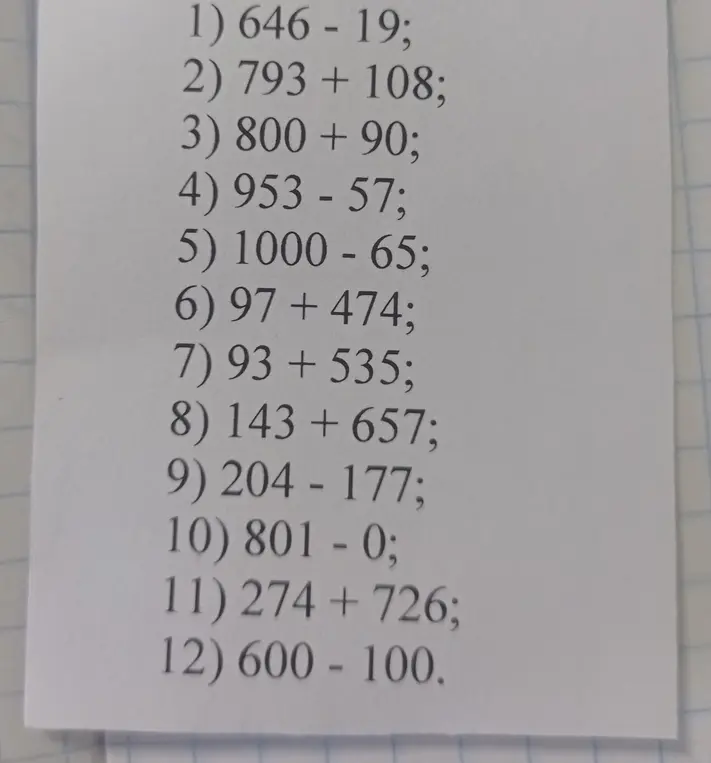 1) 646 - 19;
2) 793 + 108;
3) 800 + 90;
4) 953 - 57;
5) 1000 - 65;
6) 97 + 474;
7) 93 + 535;
8) 143 + 657;
9) 204 - 177;
10) 801 - 0;
11) 274 + 726;
12) 600 - 100.